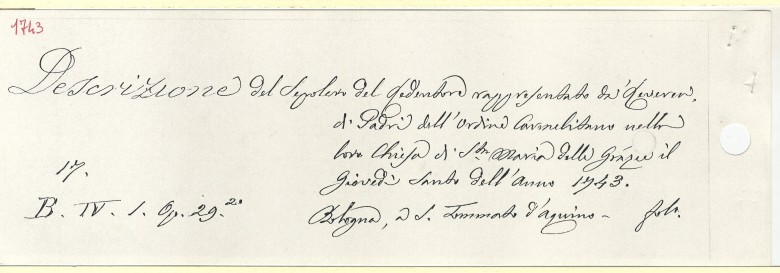 1743
Descrizione del Sepolcro del Redentore rappresentato da' Reveren,
di Padri dell'Ordine Carmelitano nella
loro Chiesa di Sta. Maria delle Grazie il
17.
Giovedì Santo dell'Anno 1743.
B. IV. 1. Op. 29.2o
Bologna, a S. Tommaso d'Aquino - folo.